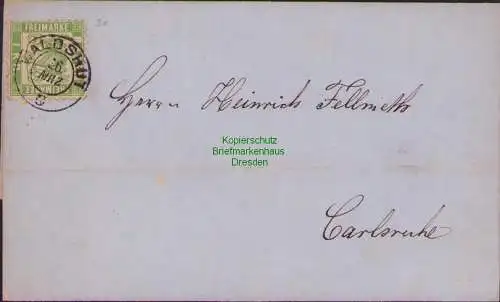 FREIMARKE
WALDSHUT
26
Herrn Heinrich Fellmeth
Kopierschutz
Briefmarkenhaus
Dresden
Carlsruhe